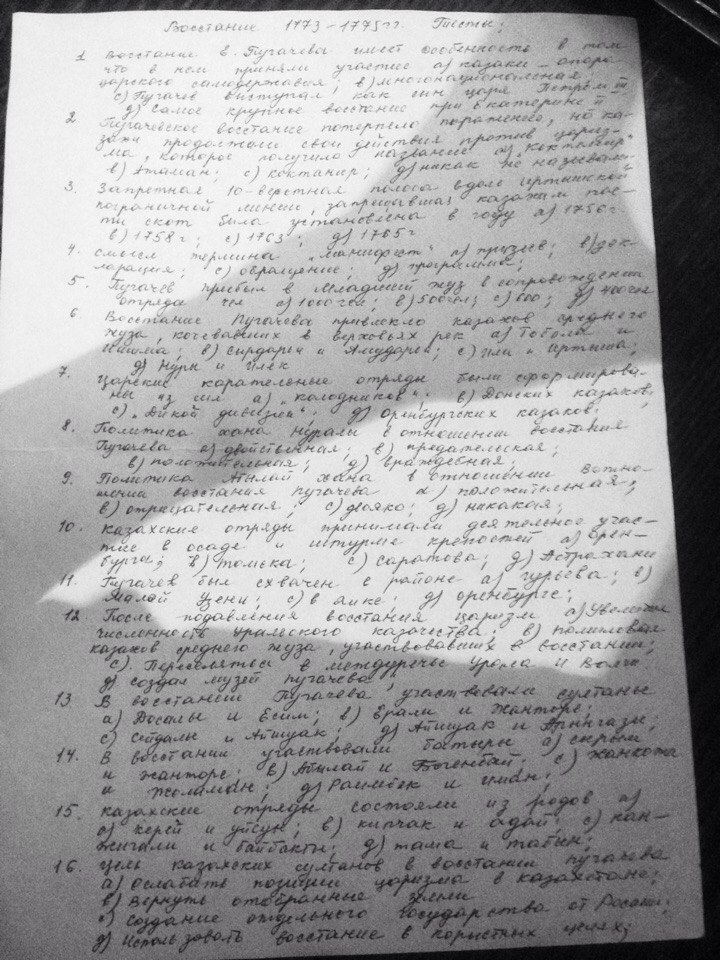 Восстание 1773-1775гг. Тесты:
1 Восстание Е. Пугачева имеет особенность в том
что в нем приняли участие а) казаки - опора
царского самодержавия, в) многонациональная,
с) Пугачев выступал, как сын царя Петром III
д) Самое крупное восстание при Екатерине II
2 Пугачевское восстание потерпело поражение, но ка-
захи продолжали свои действия против цариз-
ма, которое получило название а) "коктемир"
в) Атаман; с) коктамир; д) никак не называли
3. Запретная 10-верстная полоса вдоль Иртышской
пограничной линии, запрещавшая казахам пас-
ти скот была установлена в году а) 1756г
в) 1758г; с) 1763; д) 1765г
4. смысл термина "манифест" а) призыв; в) дек-
ларация; с) обращение; д) программа;
5. Пугачев прибыл в младший жуз в сопровождении
отряда чел а) 1000чел; в) 500чел; с) 600; д) 400чел
6 Восстание Пугачева привлекло казахов Среднего
жуза, кочевавших в верховьях рек а) Тобола и
Ишима; в) Сырдарьи и Амударьи; с) Или и Иртыша;
д) Нуры и Илек
7. Царские карательные отряды были сформирова-
ны из сил а) "колодников"; в) Донских казаков,
с) "Дикой дивизией"; д) оренбургских казаков;
8. Политика хана Нурали в отношении восстания
Пугачева а) двойственная; в) предательская;
в) положительная; д) враждебная;
9. Политика Абылай хана в отношении
восстания Пугачева а) положительная,
в) отрицательная; с) двояко; д) никакая;
10. казахские отряды принимали деятельное учас-
тие в осаде и штурме крепостей а) Орен-
бурга; в) Томска; с) Саратова; д) Астрахани
11. Пугачев был схвачен в районе а) Гурьева; в)
Малой Узени; с) в Яике; д) Оренбурге;
12. После подавления восстания царизм а) Увеличил
численность Уральского казачества; в) помиловал
казахов среднего жуза, участвовавших в восстании;
с) Переселяться в междуречье Урала и Волги
д) создал музей Пугачева
13 В восстании Пугачева участвовали султаны
а) Досалы и Есим; в) Ерали и Жанторе;
с) Сейдалы и Айшуак; д) Айшуак и Арынгазы;
14. В восстании участвовали батыры а) Срым
и Жанторе; в) Абылай и Богенбай; с) Жанкожа
и Жоламан; д) Раимбек и Иман;
15. казахские отряды состояли из родов а)
а) керей и уйсун; в) кипчак и адай; с) кан-
жигали и байбакты; д) тама и табын;
16. цель казахских султанов в восстании Пугачева
а) ослабить позиции царизма в казахстане;
в) Вернуть отобранные земли
с) создание отдельного государства от России;
д) Использовать восстание в корыстных целях;